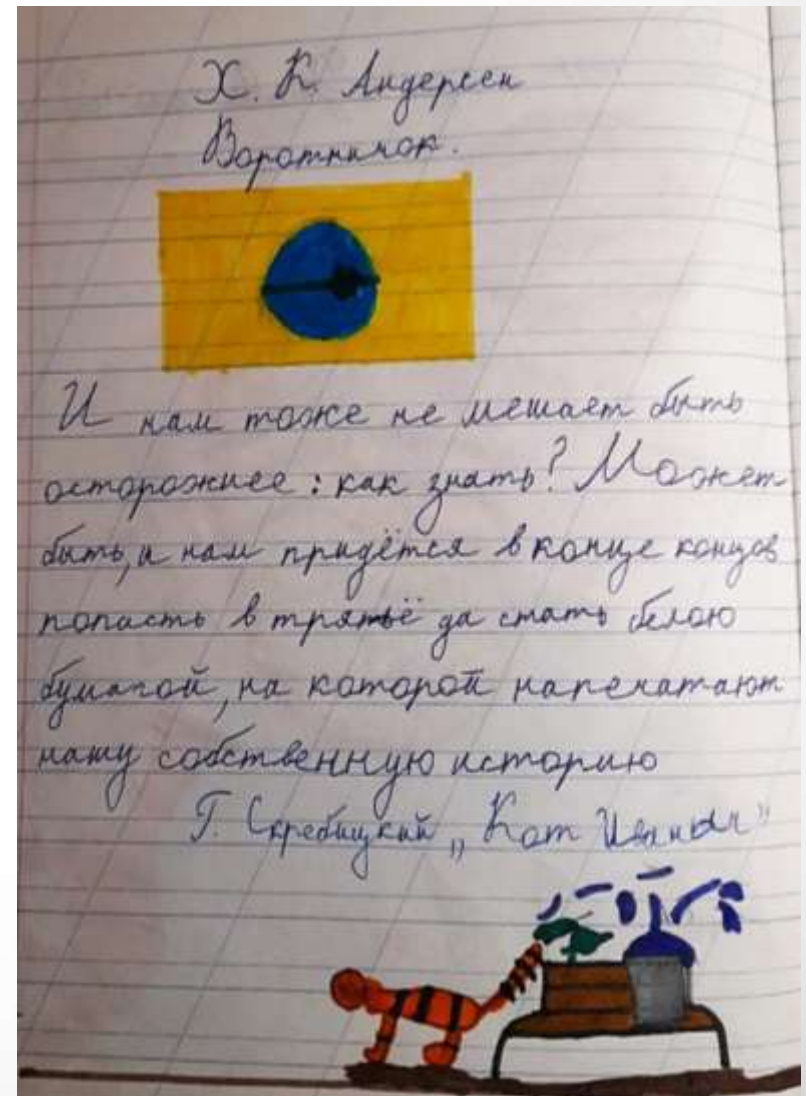 Х. К. Андерсен
Воротничок.
И нам тоже не мешает быть
осторожнее: как знать? Может
быть, и нам придётся в конце концов
попасть в тряпьё да стать белою
бумагой, на которой напечатают
нашу собственную историю
Г. Скребицкий „Кот Иваныч"